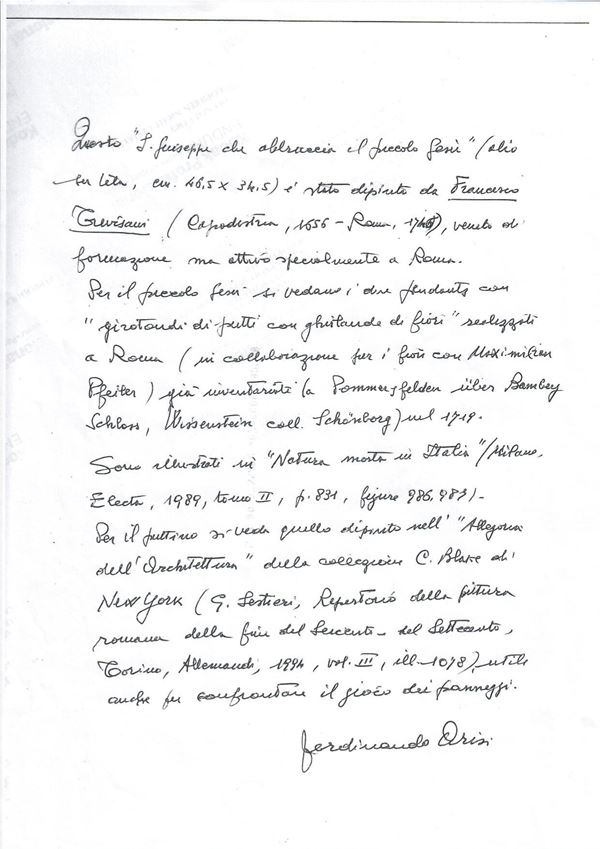 Questo "S. Giuseppe che abbraccia il piccolo Gesù" (olio
su tela, cm. 46,5 x 34,5) è stato dipinto da Francesco
Trevisani (Capodistria, 1656 - Roma, 1746), veneto di
formazione ma attivo specialmente a Roma.
Per il piccolo Gesù si vedano i due pendants con
"girotondi di putti con ghirlande di fiori" realizzati
a Roma (in collaborazione per i fiori con Maximilian
Pfeiler) già inventariati (a Pommersfelden über Bamberg
Schloss, Wissenstein coll. Schönborg) nel 1719.
Sono illustrati in "Natura morta in Italia" (Milano,
Electa, 1989, tomo II, p. 831, figure 986, 987).
Per il puttino si veda quello dipinto nell' "Allegoria
dell'Architettura" della collezione C. Blake di
New York (G. Sestieri, Repertorio della pittura
romana della fine del Seicento e del Settecento,
Torino, Allemandi, 1994, vol. III, ill. 1078), utile
anche per confrontare il gioco dei panneggi.
Ferdinando Arisi